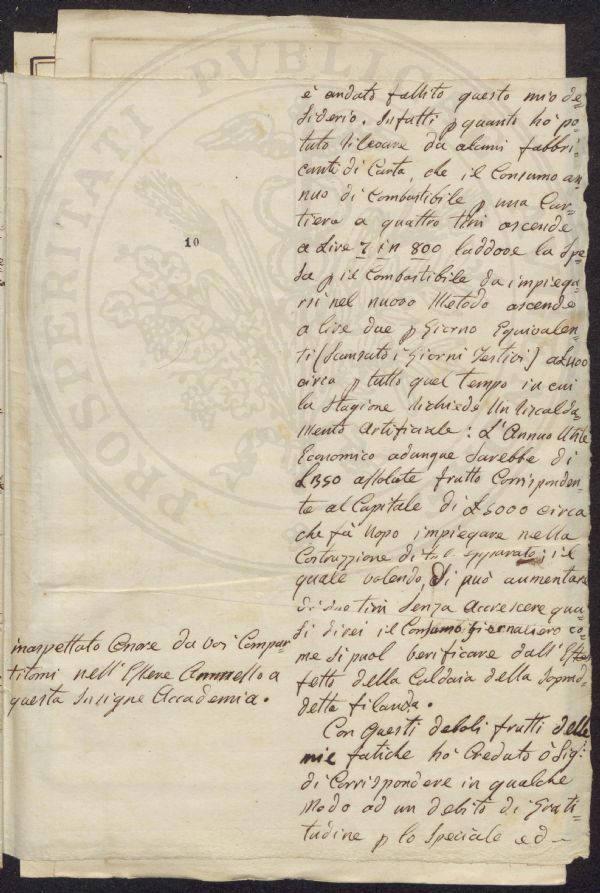 PROSPERITATI PVBLICAE
10
è andato fallito questo mio de-
siderio. Infatti p quanto hò po-
tuto rilevare da alcuni fabbri-
canti di Carta, che il Consumo an-
nuo di Combustibile p una Car-
tiera a quattro tini ascende
a Lire 7 in 800 laddove la Spe-
sa p il Combustibile da impiegar-
si nel nuovo Metodo ascende
a lire due p Giorno Equivalen-
ti (Scansato i Giorni Festivi) a £400
circa p tutto quel tempo in cui
la Stagione richiede Un riscalda-
mento Artificiale: L'Annuo Utile
Economico adunque Sarebbe di
£350 assolute frutto Corrisponden-
te al Capitale di £5000 circa
che fà Uopo impiegare nella
Costruzzione di apparato; il
quale volendo, Si può aumentare
di due tini Senza Accrescere qua-
si direi il Consumo giornaliero co-
me Si puol verificare dall'Ef-
fetti della Caldaia della Soprad-
detta filanda.
Con Questi deboli frutti delle
mie fatiche hò Creduto ò Sigi:
di Corrispondere in qualche
Modo ad un debito di Grati-
tudine p lo Speciale ed
inaspettato Onore da Voi Compar-
titomi nell'Essere Ammesso a
questa Insigne Accademia.